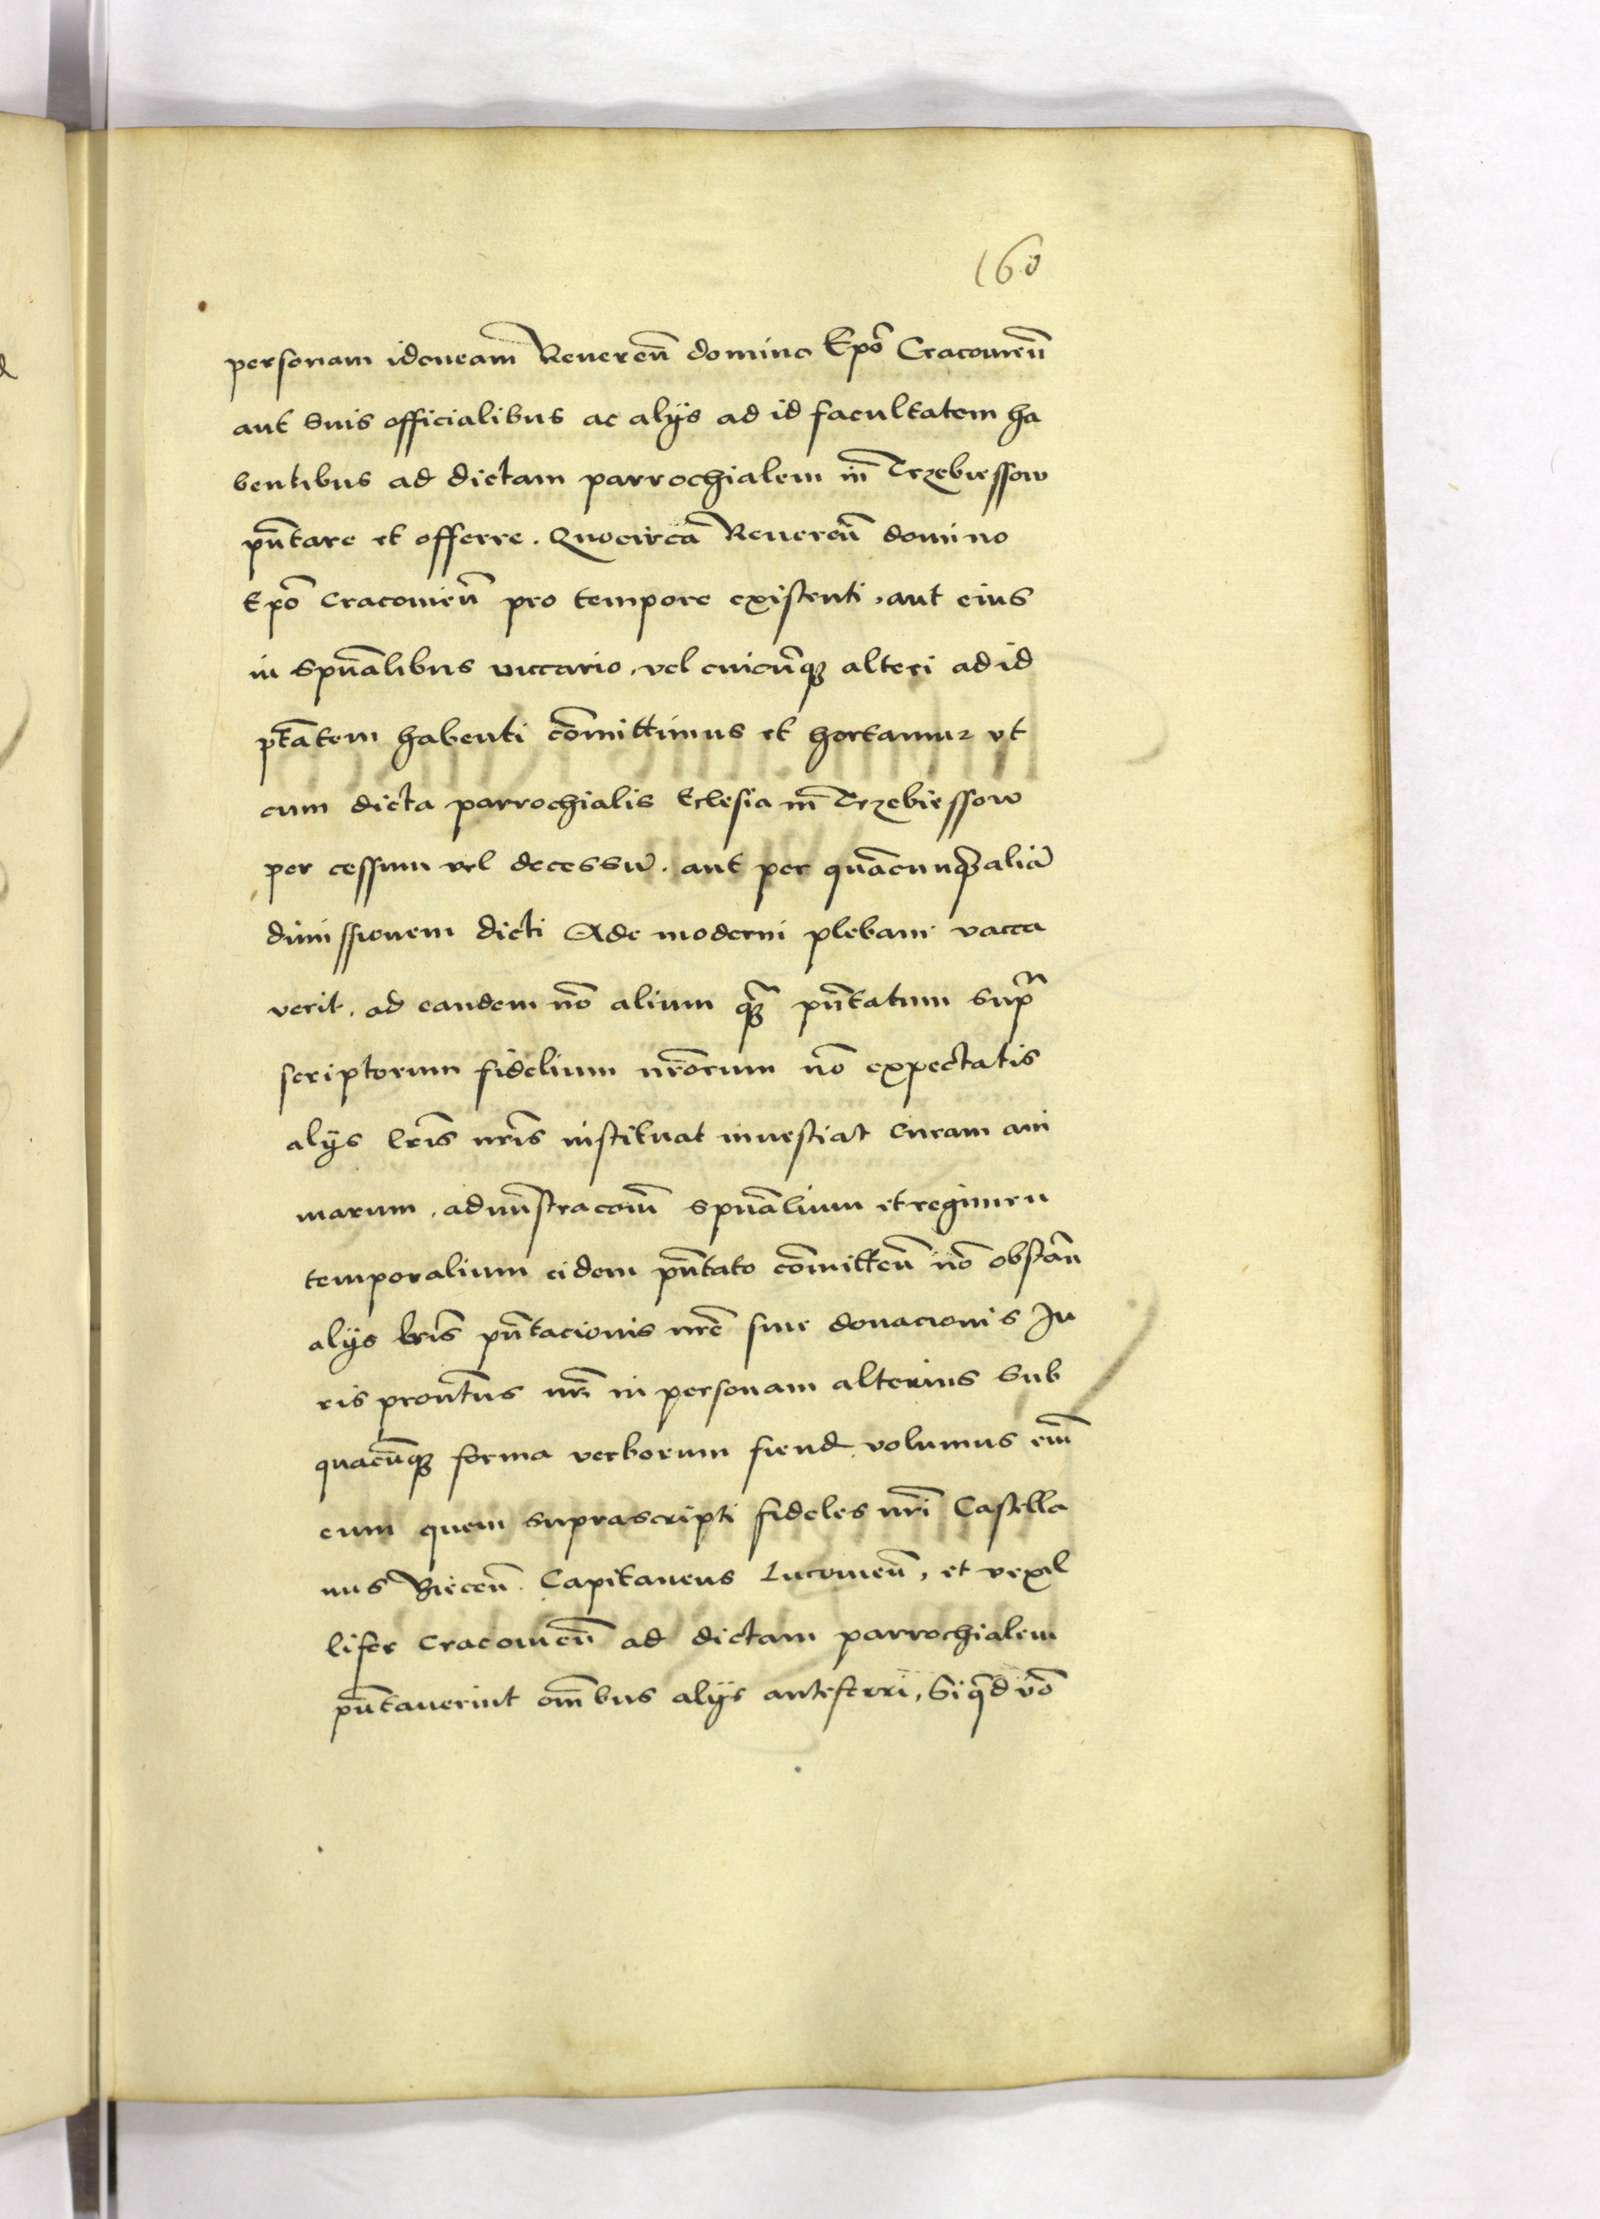 160
personam idoneam Reueren̄ domino Ep̄o Cracouien̄
aut suis officialibus ac alijs ad id facultatem ha
bentibus ad dictam parrochialem in Trzebiessow
pn̄tare et offerre. Quocirca Reueren̄ domino
Ep̄o Cracouien̄ pro tempore existenti, aut eius
in spūalibus viccario, vel cuicūq3 alteri ad id
ptātem habenti cōmittimus et hortamur vt
cum dicta parrochialis Eclesia in Trzebiessow
per cessum vel decessū. aut per quācunq3 aliā
dimissionem dicti Ade moderni plebani vacca
verit, ad eandem nō alium q3 pn̄tatum supra
scriptorum fidelium nr̄orum nō expectatis
alijs lr̄is nr̄is instituat inuestiat curam ani
marum, adm̄straconē spūalium et regimen
temporalium eidem pn̄tato cōmitten̄ nō obstan̄
alijs lr̄is pn̄tacionis nr̄e siue donacionis Ju
ris pron̄tus nr̄i in personam alterius sub
quacūq3 forma verborum fiend volumus em̄
eum quem suprascripti fideles nr̄i Castella
nus Biecen̄. Capitaneus Lucouien̄, et vexil
lifer Cracouien̄ ad dictam parrochialem
pn̄tauerint om̄ibus alijs anteferri, Si qd vō